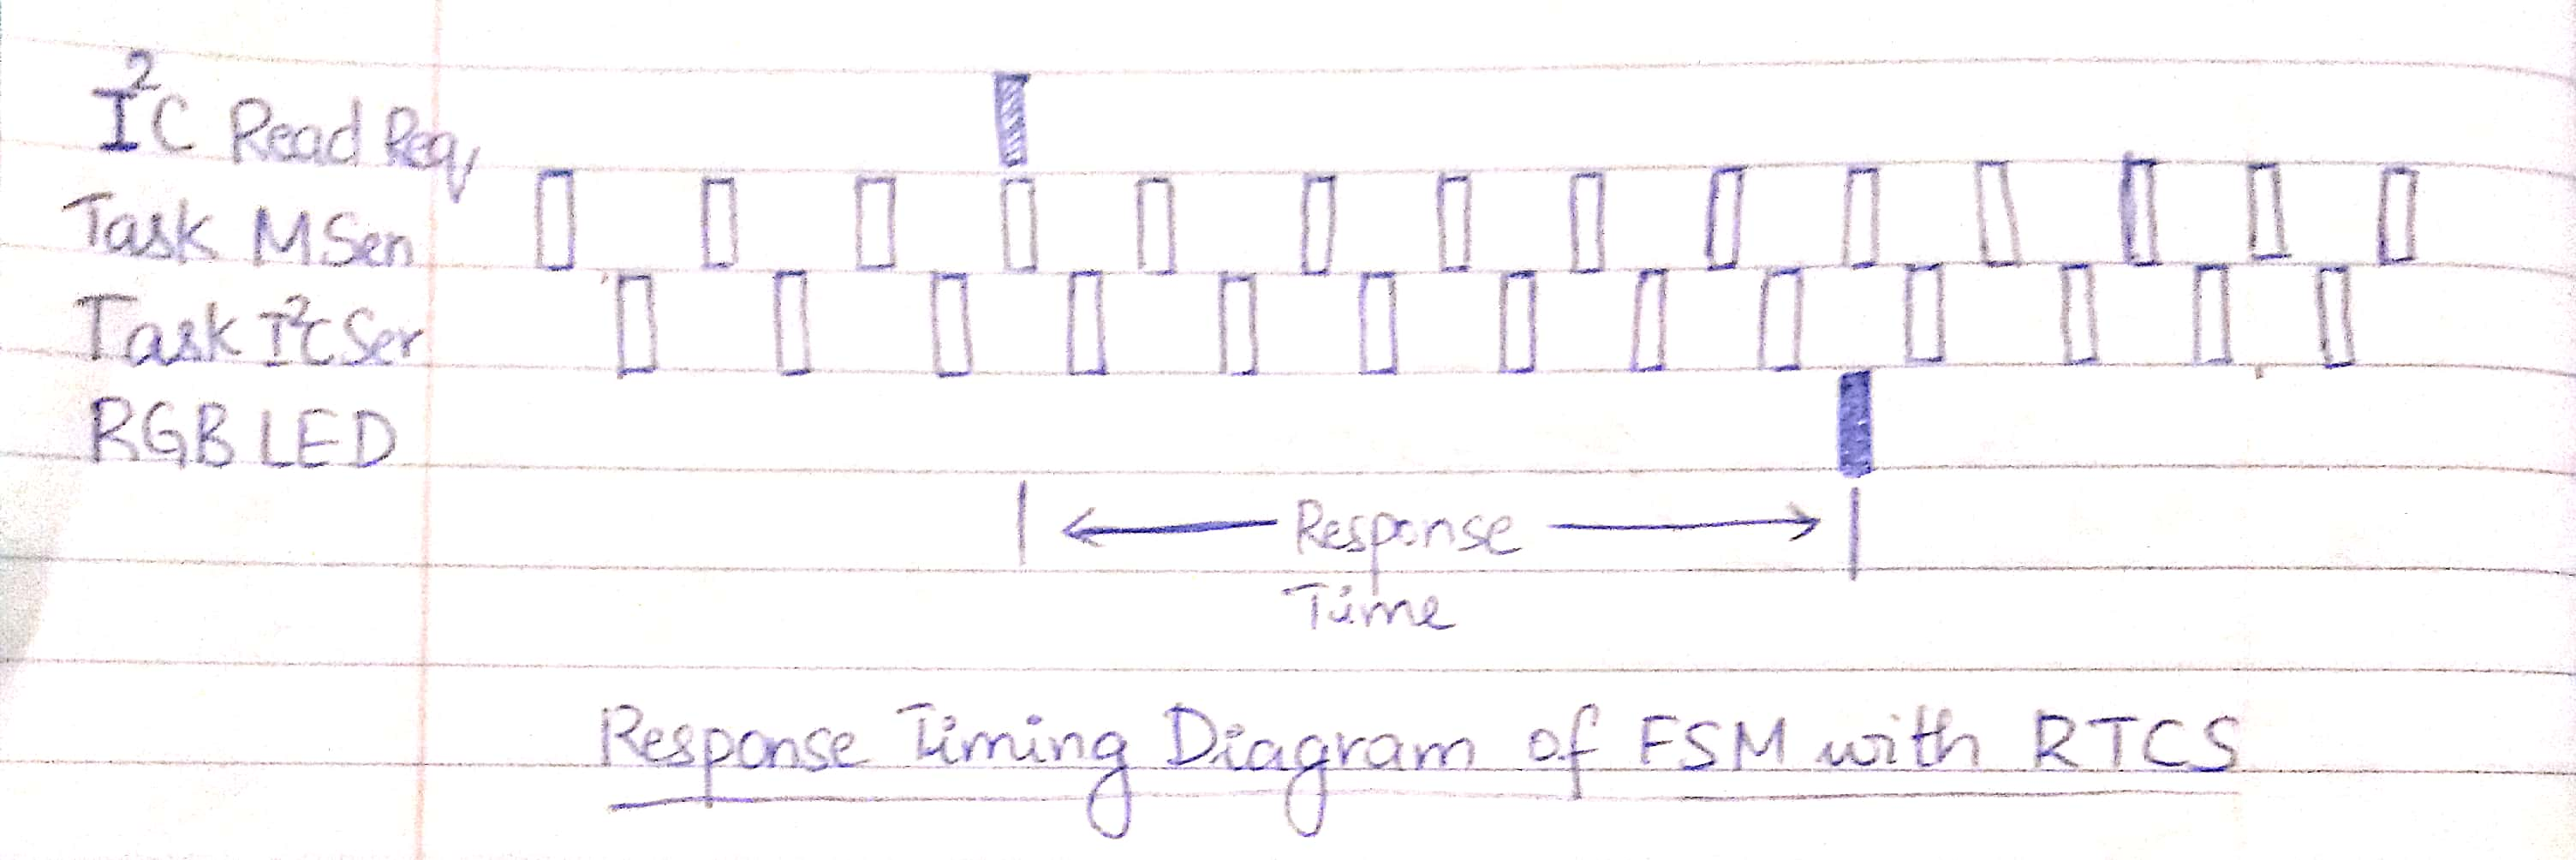 I²C Read Req
Task MSen
Task I²C Ser
RGB LED
Response
Time
Response Timing Diagram of FSM with RTCS